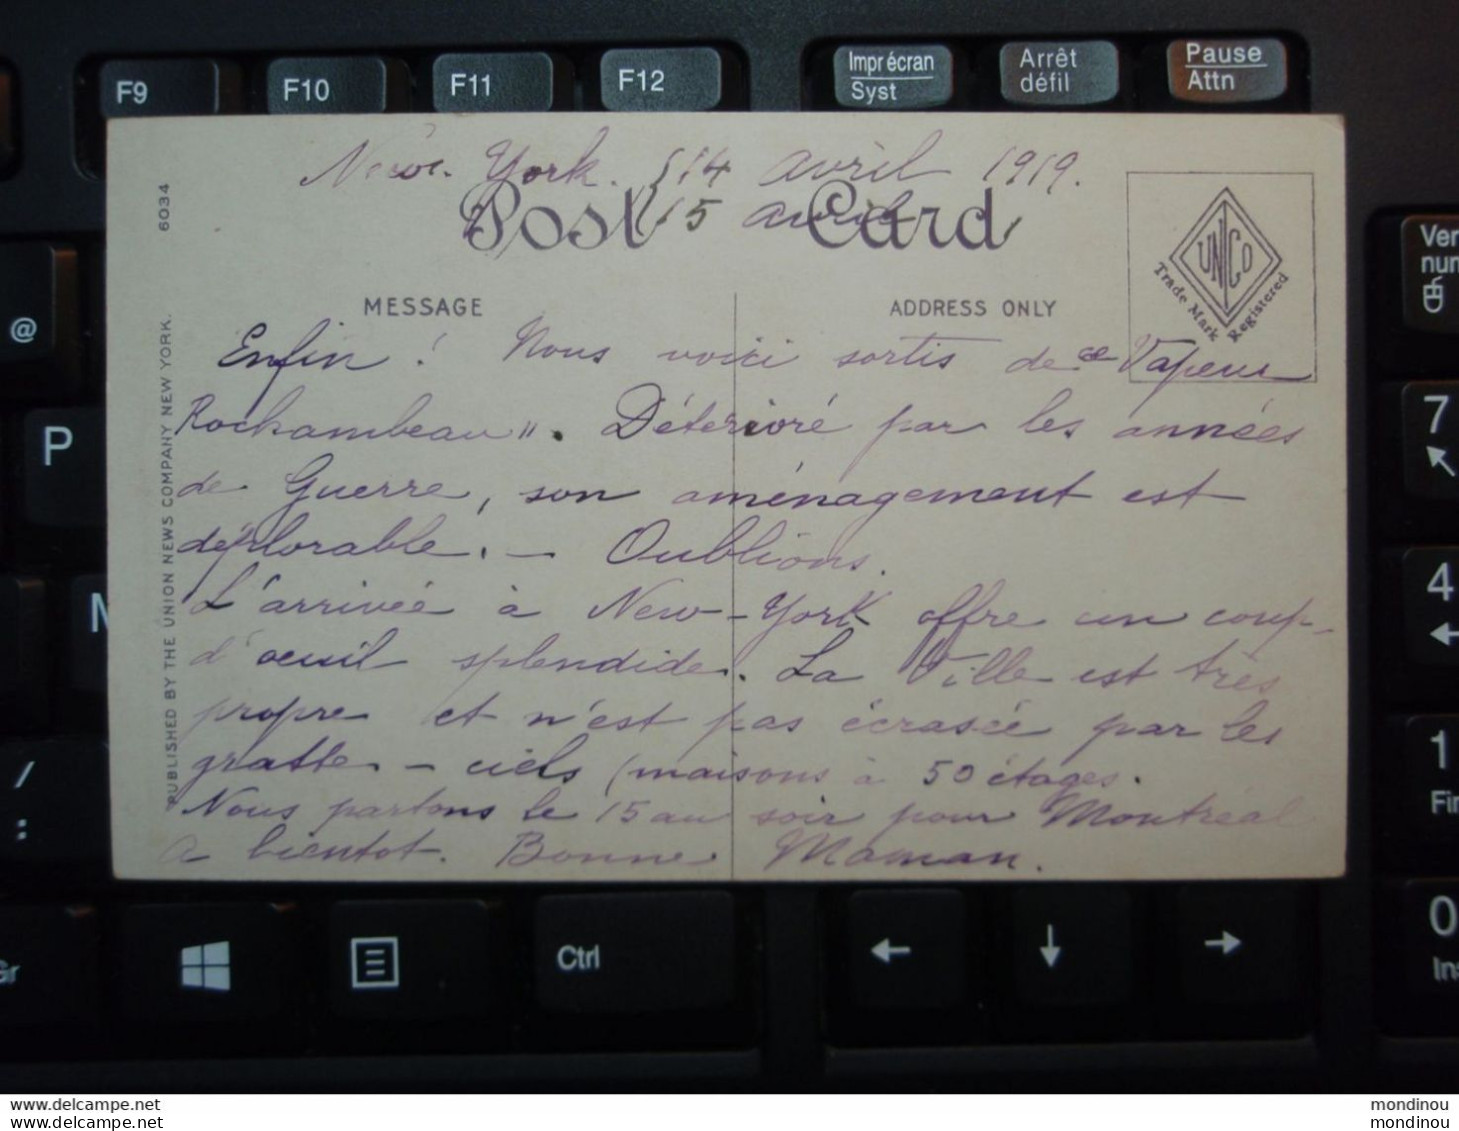 F9
F10
F11
F12
Impr écran
Syst
Arrêt
défil
Pause
Attn
New-York. 14 avril 1919.
15 avril
Post Card
6034
UNCO
Trade Mark Registered
MESSAGE
ADDRESS ONLY
PUBLISHED BY THE UNION NEWS COMPANY NEW YORK.
Enfin! Nous voici sortis de ce Vapeur
Rochambeau". Détérioré par les années
de Guerre, son aménagement est
déplorable. - Oublions.
L'arrivée à New-York offre un coup-
d'oeuil splendide. La Ville est très
propre et n'est pas écrasée par les
gratte-ciels (maisons à 50 étages.
Nous partons le 15 au soir pour Montréal
A bientot. Bonne Maman.
Ver
num
@
P
7
4
M
1
Fin
/
:
0
Ins
Gr
Ctrl
← ↓ →
delcampe.net
mondinou
delcampe.net
mondinou